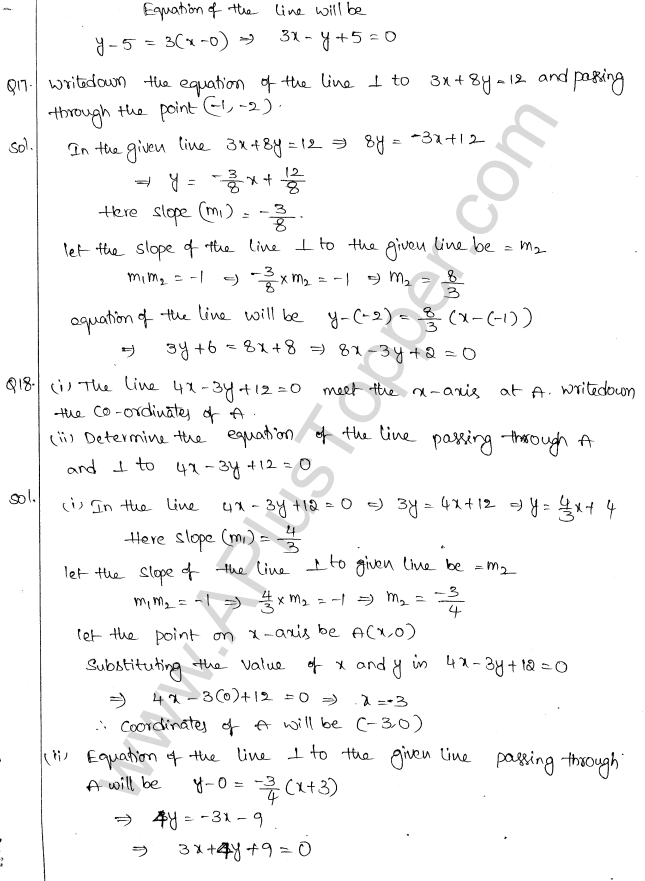 Equation of the line will be
y-5 = 3(x-0) ⇒ 3x-y+5=0
Q17. Writedown the equation of the line ⊥ to 3x+8y=12 and passing
through the point (-1,-2).
Sol. In the given line 3x+8y=12 ⇒ 8y = -3x+12
⇒ y = -3/8 x + 12/8
Here slope (m1) = -3/8.
let the slope of the line ⊥ to the given line be = m2
m1m2 = -1 ⇒ -3/8 × m2 = -1 ⇒ m2 = 8/3
equation of the line will be y-(-2) = 8/3 (x-(-1))
⇒ 3y+6 = 8x+8 ⇒ 8x-3y+2=0
Q18. (i) The line 4x-3y+12=0 meet the x-axis at A. writedown
the co-ordinates of A.
(ii) Determine the equation of the line passing through A
and ⊥ to 4x-3y+12=0
Sol. (i) In the line 4x-3y+12=0 ⇒ 3y=4x+12 ⇒ y=4/3 x+4
Here slope (m1) = -4/3
let the slope of the line ⊥ to given line be = m2
m1m2 = -1 ⇒ 4/3 × m2 = -1 ⇒ m2 = -3/4
let the point on x-axis be A(x,0)
Substituting the value of x and y in 4x-3y+12=0
⇒ 4x-3(0)+12 = 0 ⇒ x=-3
∴ coordinates of A will be (-3,0)
(ii) Equation of the line ⊥ to the given line passing through
A will be y-0 = -3/4 (x+3)
⇒ 4y = -3x-9
⇒ 3x+4y+9=0
www.APlusTopper.com